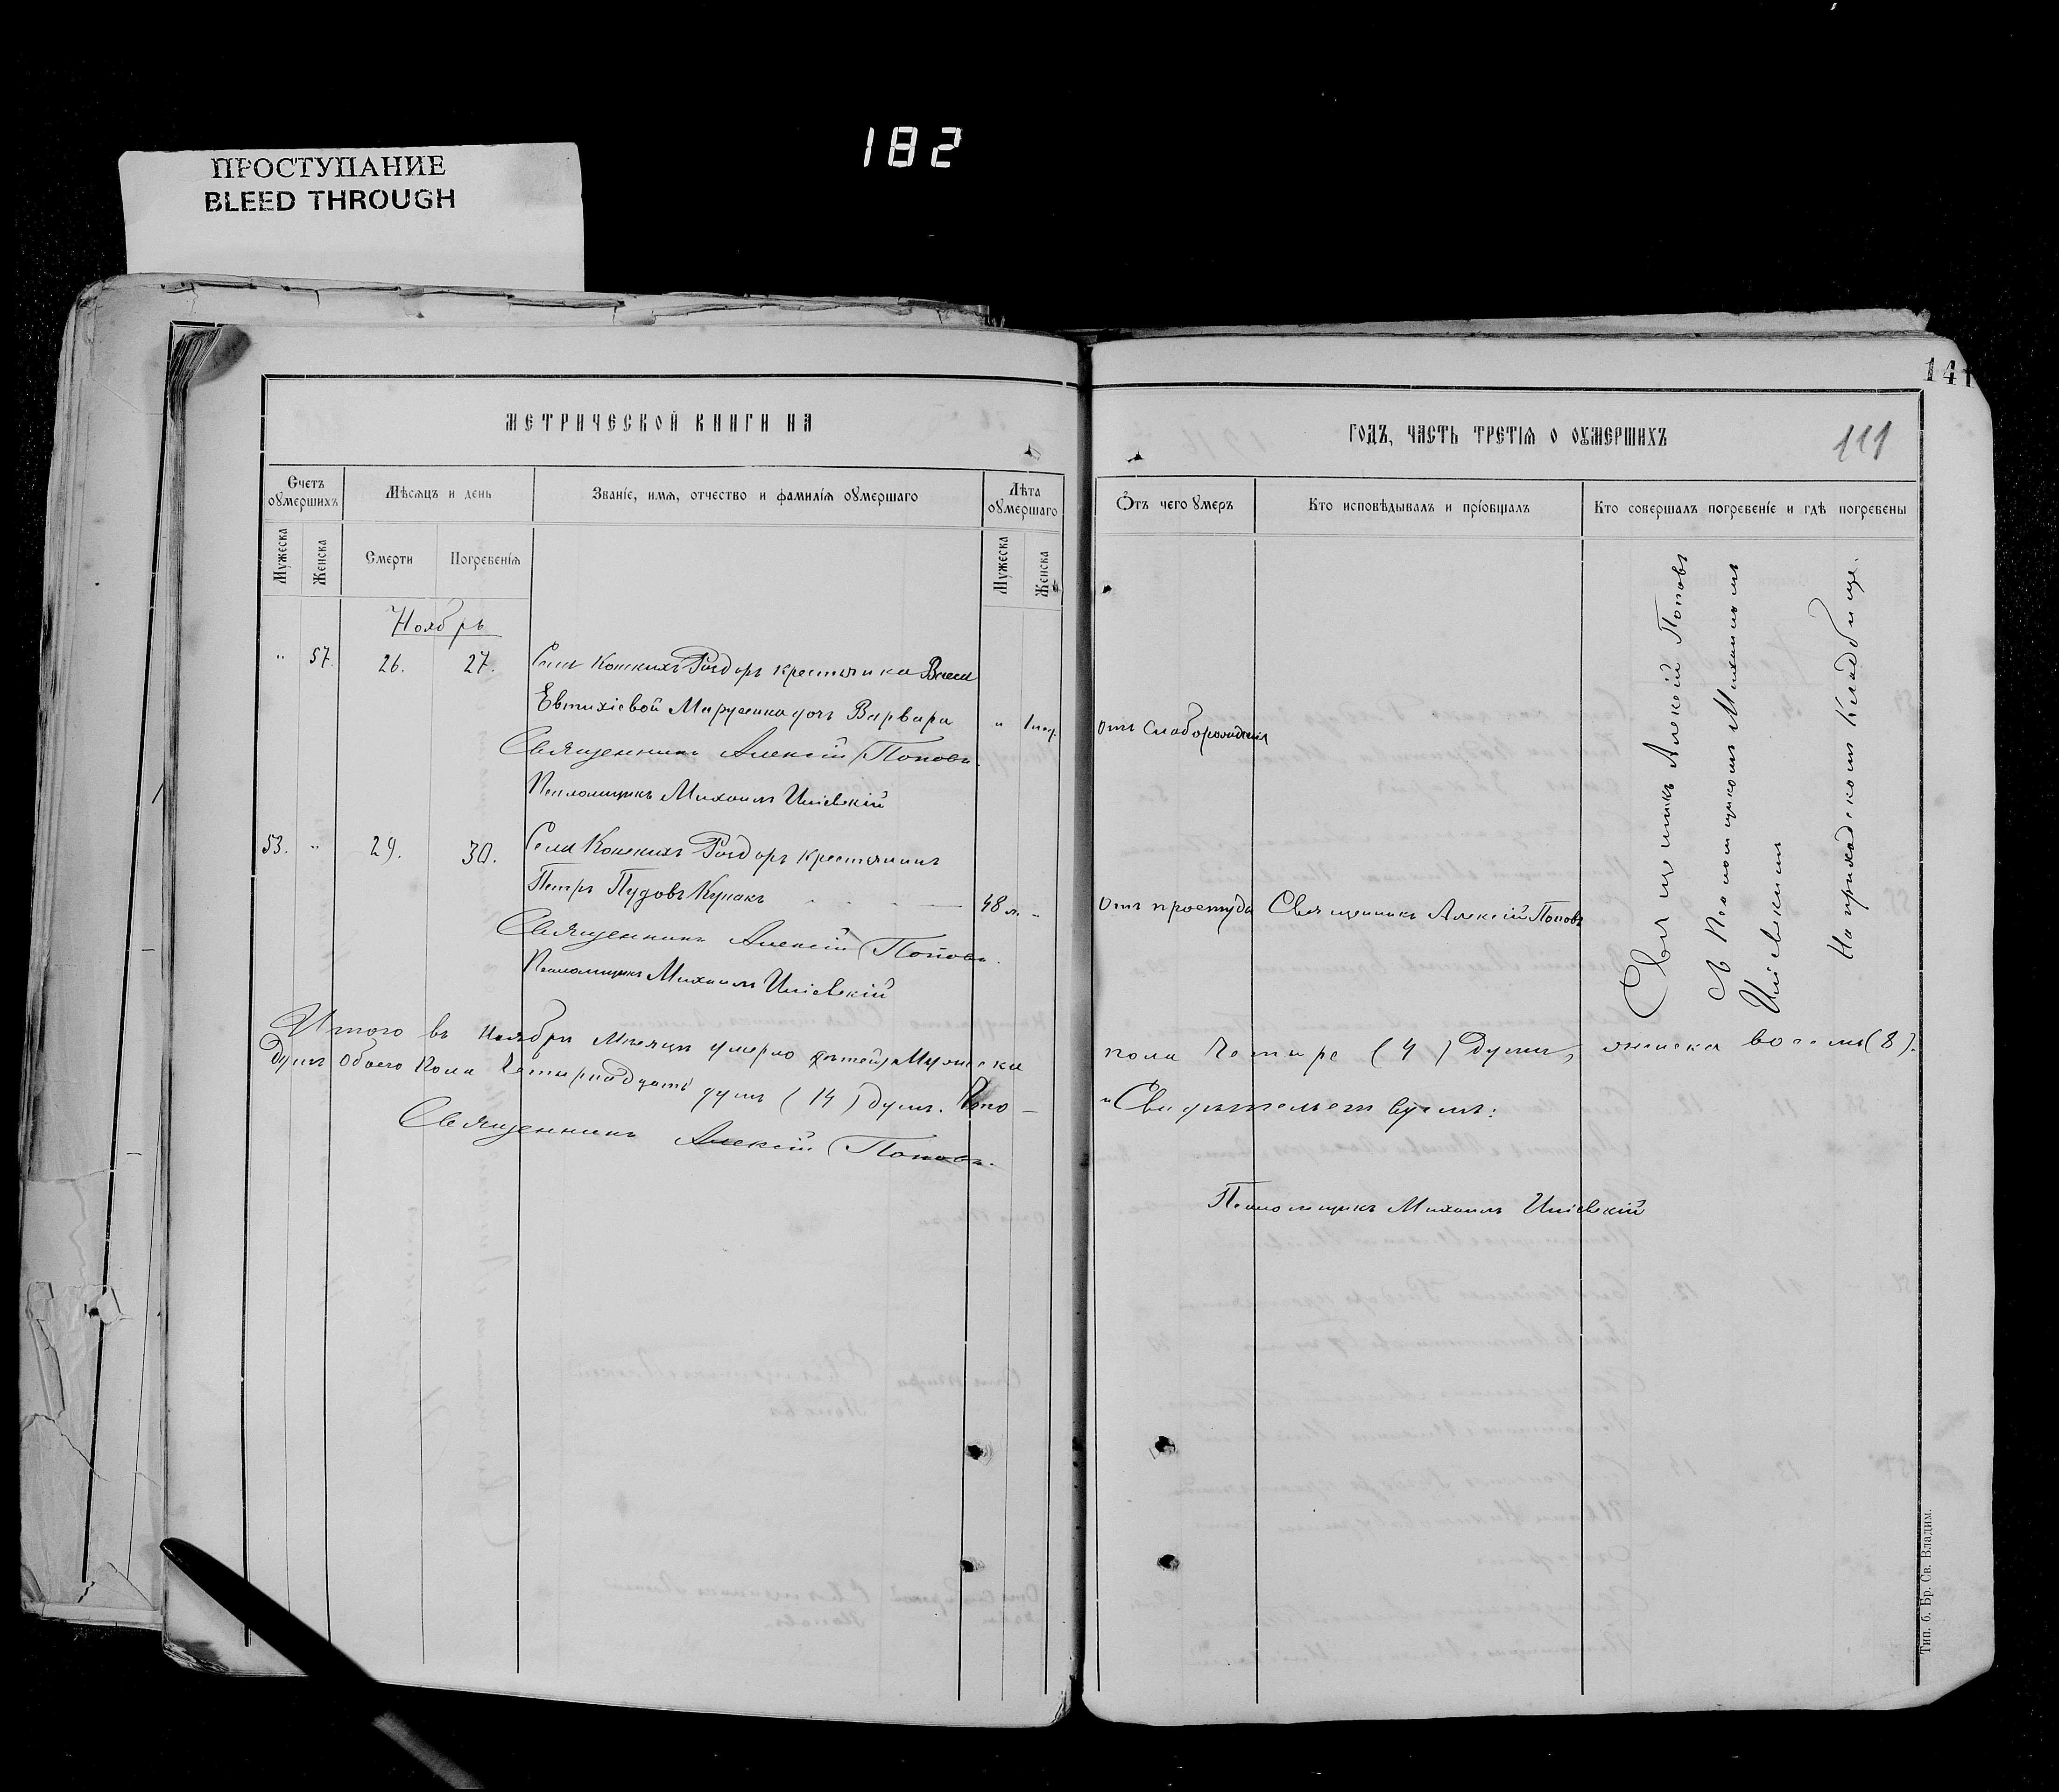 182
ПРОСТУПАНИЕ
BLEED THROUGH
141
МЕТРИЧЕСКОЙ КНИГИ НА
ГОДЪ, ЧАСТЬ ТРЕТІЯ О ОУМЕРШИХЪ
111
Счетъ оумершихъ
Мѣсяцъ и день
Званіе, имя, отчество и фамилія оумершаго
Лѣта оумершаго
Отъ чего умеръ
Кто исповѣдывалъ и пріобщалъ
Кто совершалъ погребеніе и гдѣ погребены
Мужеска
Женска
Смерти
Погребенія
Мужеска
Женска
Ноябрь
" 57. 26. 27. Села Конскихъ Роздоръ крестьянка
Евтихіевой Марусенка дочь Варвара " 1 мѣс. отъ слаборожденія
Священникъ Алексій Поповъ.
Псаломщикъ Михаилъ
53. " 29. 30. Села Конскихъ Роздоръ крестьянинъ
Петръ Пудовъ Кунакъ 48 л. - отъ простуды Священникъ Алексій Поповъ
Священникъ Алексій Поповъ.
Псаломщикъ Михаилъ
Священникъ Алексій Поповъ
съ Псаломщикомъ Михаиломъ
На приходскомъ кладбище.
Итого въ Ноябрѣ Мѣсяцѣ умерло Мужеска пола Четыре (4) души, женска восемь (8).
Душъ обоего пола Четырнадцать душъ (14) душъ. Что - Свидѣтельствуемъ:
Священникъ Алексій Поповъ.
Псаломщикъ Михаилъ
Тип. б. Бр. Св. Владим.